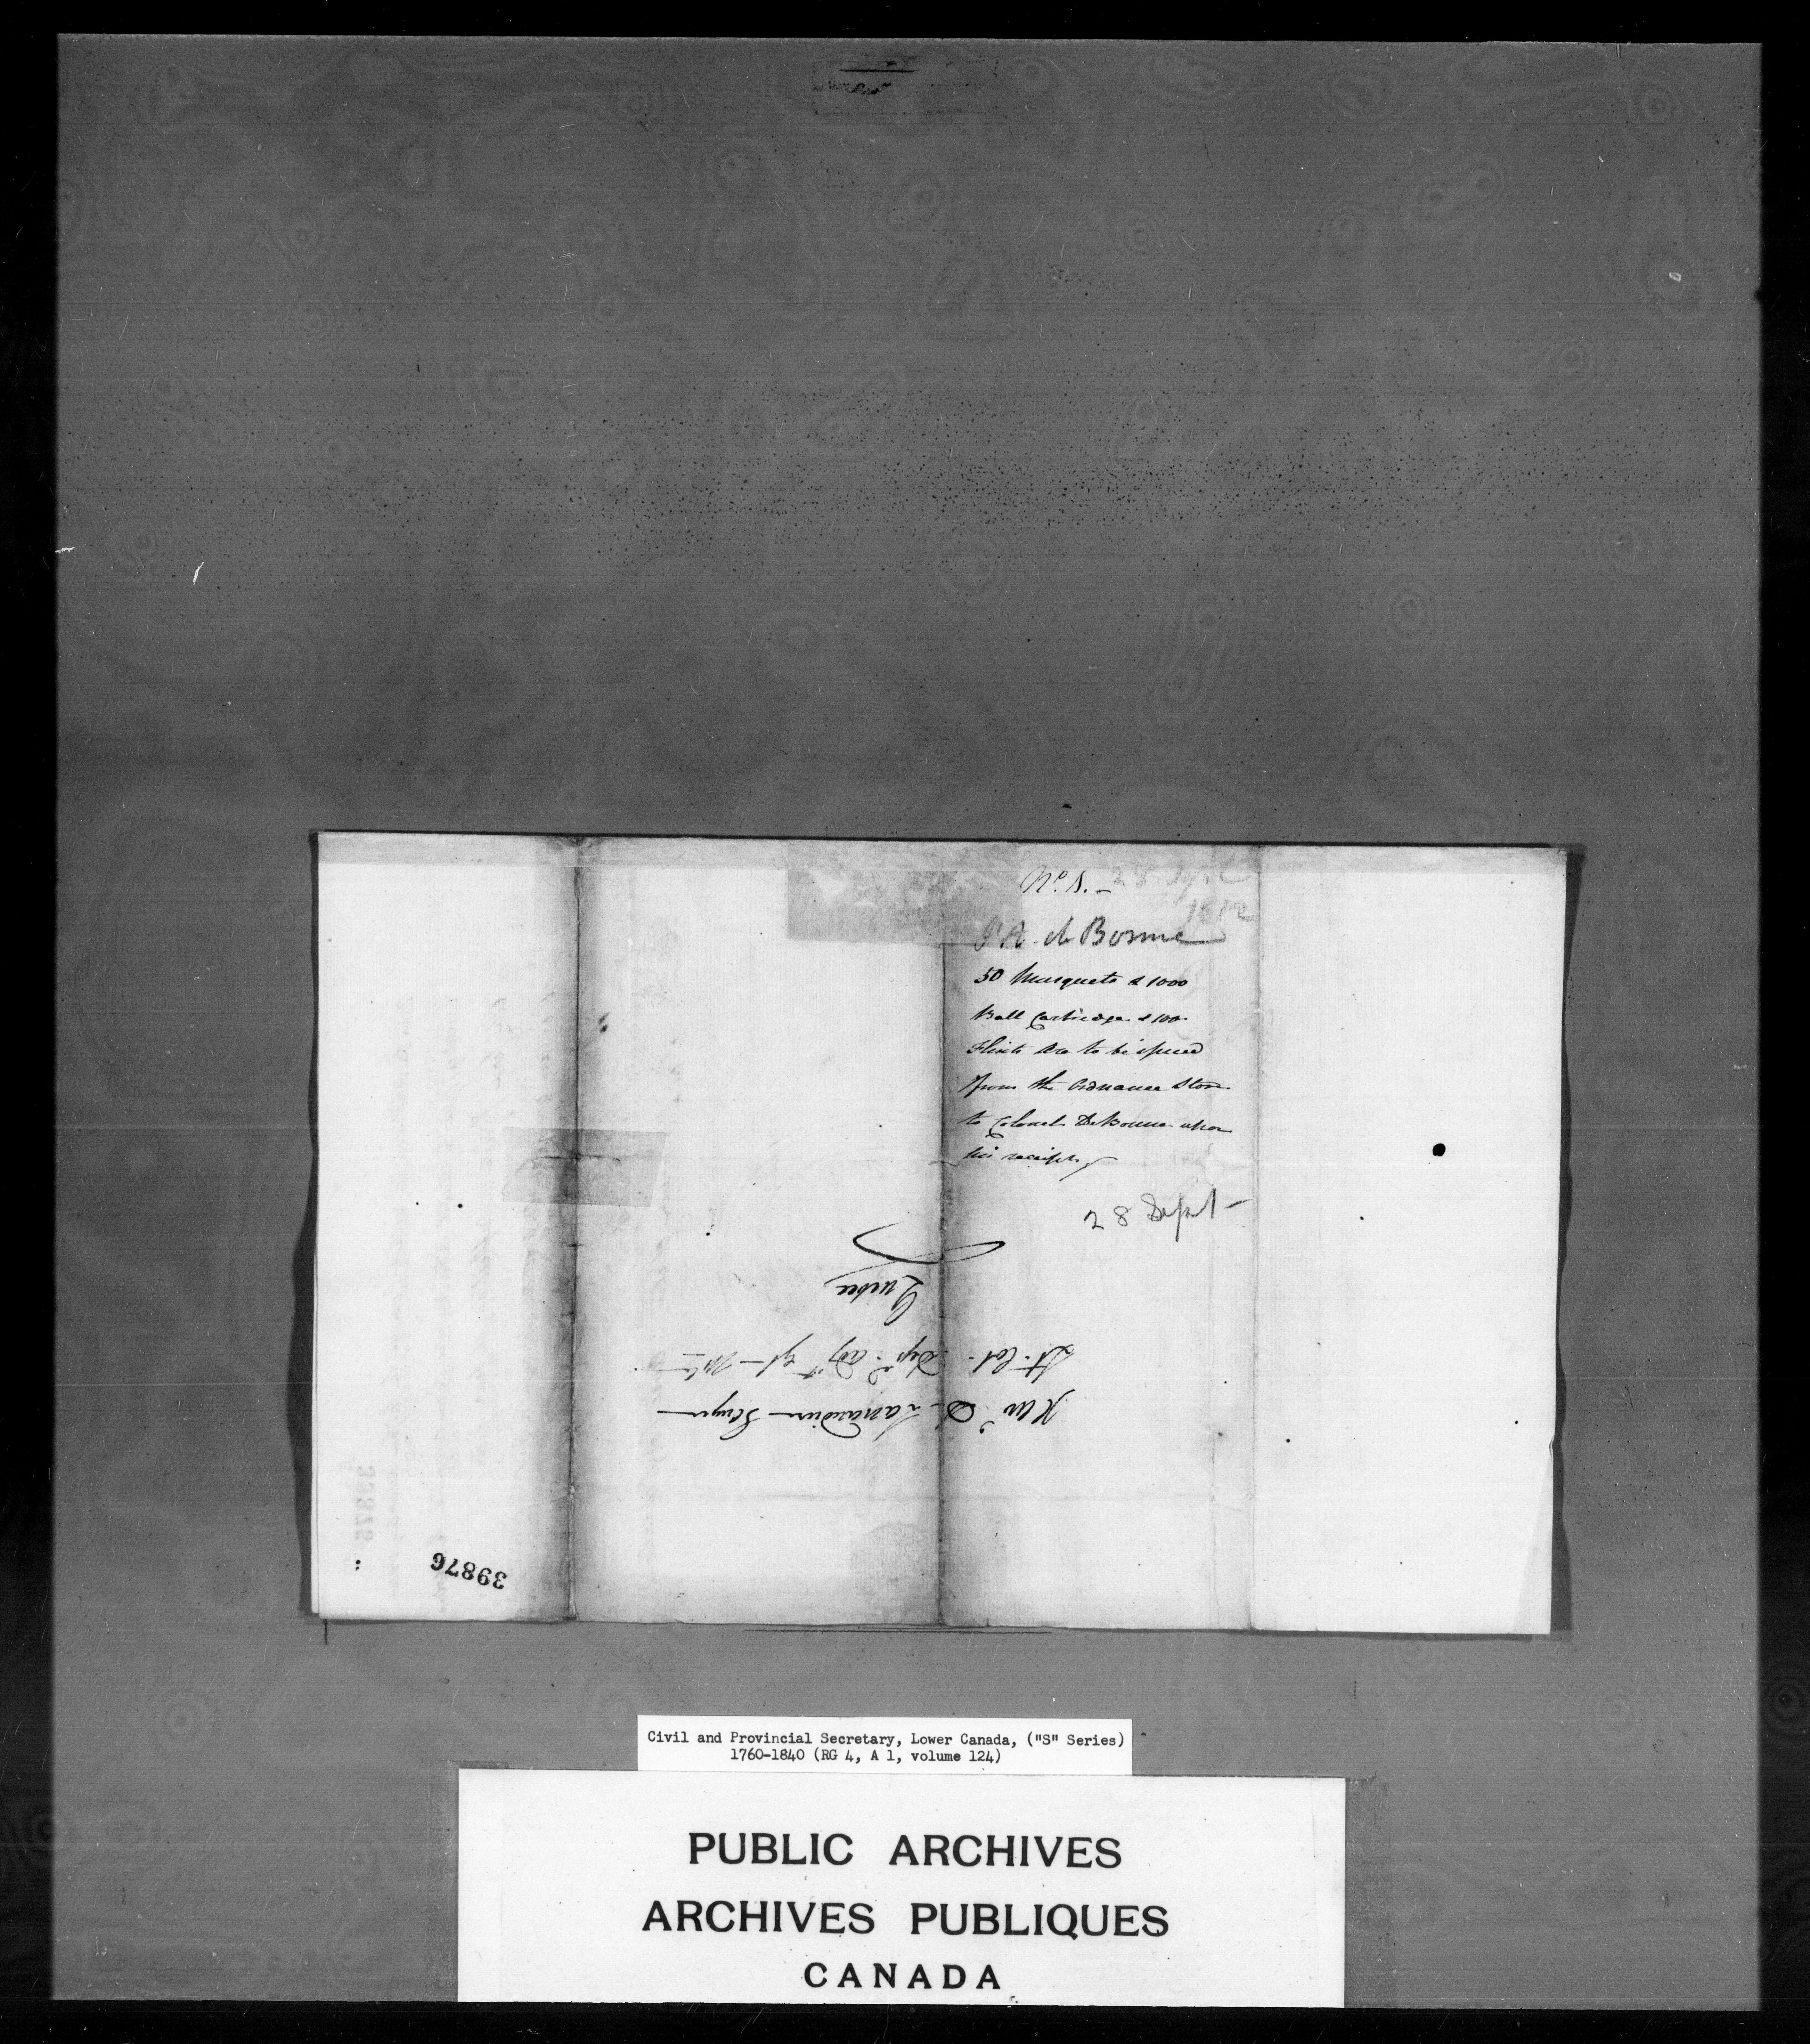 No. 1. - 28 Sept
1812
P A de Bonne
50 Musquets & 1000
Ball Cartridge & 100
Flints are to be issued
from the Ordnance Store
to Colonel DeBonne upon
his receipt
28 Sept -
Xav. D Lanaudiere
Lt. Col. Dep. Adjt Gl Mil
Quebec
39876
Civil and Provincial Secretary, Lower Canada, ("S" Series)
1760-1840 (RG 4, A 1, volume 124)
PUBLIC ARCHIVES
ARCHIVES PUBLIQUES
CANADA